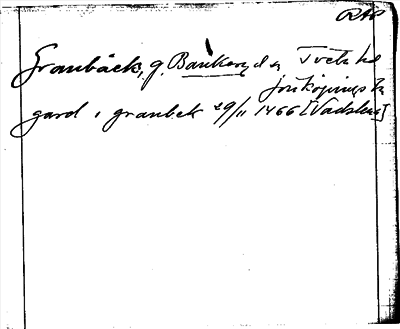 RAP
Granbäck, g. Bankeryd sn Tveta hd
Jönköpings l.
gard i granbek 29/11 1466 [Vadstena]